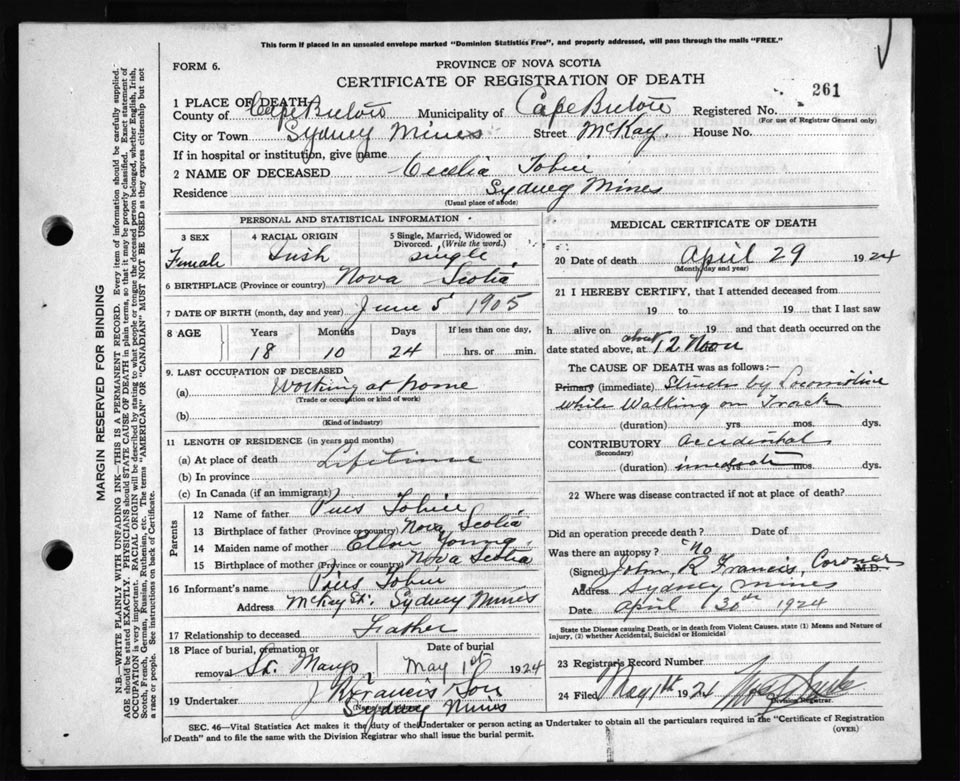 This form if placed in an unsealed envelope marked "Dominion Statistics Free", and properly addressed, will pass through the mails "FREE."
FORM 6.
PROVINCE OF NOVA SCOTIA
CERTIFICATE OF REGISTRATION OF DEATH
261
1 PLACE OF DEATH
County of Cape Breton Municipality of Cape Breton Registered No.
(For use of Registrar General only)
City or Town Sydney Mines Street McKay. House No.
If in hospital or institution, give name
2 NAME OF DECEASED Cecelia Tobin
Residence Sydney Mines
(Usual place of abode)
PERSONAL AND STATISTICAL INFORMATION
3 SEX Female
4 RACIAL ORIGIN Irish
5 Single, Married, Widowed or Divorced. (Write the word.) single
6 BIRTHPLACE (Province or country) Nova Scotia
7 DATE OF BIRTH (month, day and year) June 5 1905
8 AGE Years Months Days If less than one day,
18 10 24 hrs. or min.
9. LAST OCCUPATION OF DECEASED
(a) Working at home
(Trade or occupation or kind of work)
(b)
(Kind of industry)
11 LENGTH OF RESIDENCE (in years and months)
(a) At place of death Lifetime
(b) In province
(c) In Canada (if an immigrant)
Parents
12 Name of father Pius Tobin
13 Birthplace of father (Province or country) Nova Scotia
14 Maiden name of mother Ellen Young.
15 Birthplace of mother (Province or country) Nova Scotia
16 Informant's name Pius Tobin
Address McKay St. Sydney Mines
17 Relationship to deceased Father
18 Place of burial, cremation or removal St. Marys Date of burial May 1st 1924
19 Undertaker J R Francis Son
Sydney Mines
MEDICAL CERTIFICATE OF DEATH
20 Date of death April 29 1924
(Month, day and year)
21 I HEREBY CERTIFY, that I attended deceased from
19 to 19 that I last saw
h alive on 19 and that death occurred on the
date stated above, at about 12 Noon
The CAUSE OF DEATH was as follows:—
Primary (immediate) Struck by Locomotive
while Walking on Track
(duration) yrs. mos. dys.
CONTRIBUTORY accidental
(Secondary)
(duration) mos. dys.
22 Where was disease contracted if not at place of death?
Did an operation precede death? Date of
Was there an autopsy? No
(Signed) John R Francis, Coroner M.D.
Address Sydney Mines
Date April 30th 1924
State the Disease causing Death, or in death from Violent Causes, state (1) Means and Nature of
Injury, (2) whether Accidental, Suicidal or Homicidal
23 Registrar's Record Number
24 Filed May 1th 1924
Division Registrar.
SEC. 46—Vital Statistics Act makes it the duty of the Undertaker or person acting as Undertaker to obtain all the particulars required in the "Certificate of Registration
of Death" and to file the same with the Division Registrar who shall issue the burial permit.
(OVER)
MARGIN RESERVED FOR BINDING
N.B.—WRITE PLAINLY, WITH UNFADING INK—THIS IS A PERMANENT RECORD. Every item of information should be carefully supplied.
AGE should be stated EXACTLY. PHYSICIANS should STATE CAUSE OF DEATH in plain terms, so that it may be properly classified. Exact statement of
OCCUPATION is very important. RACIAL ORIGIN will be described by stating to what people or tongue the deceased person belonged, whether English, Irish,
Scotch, French, German, Russian, Ruthenian, etc. The terms "AMERICAN" OR "CANADIAN" MUST NOT BE USED as they express citizenship but not
a race or people. See instructions on back of Certificate.